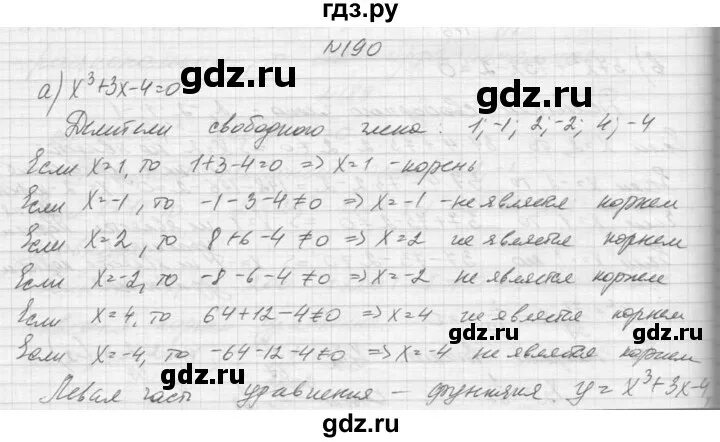 гдз.ру
№190
а) x³+3x-4=0
Делители свободного члена: 1; -1; 2; -2; 4; -4
Если x=1, то 1+3-4=0 => x=1 - корень
Если x=-1, то -1-3-4≠0 => x=-1 - не является корнем
Если x=2, то 8+6-4≠0 => x=2 не является корнем
Если x=-2, то -8-6-4≠0 => x=-2 не является корнем
Если x=4, то 64+12-4≠0 => x=4 не является корнем
Если x=-4, то -64-12-4≠0 => x=-4 не является корнем
Левая часть уравнения - функция y=x³+3x-4,
gdz.ru
gdz.ru
gdz.ru
gdz.ru
gdz.ru
gdz.ru
gdz.ru